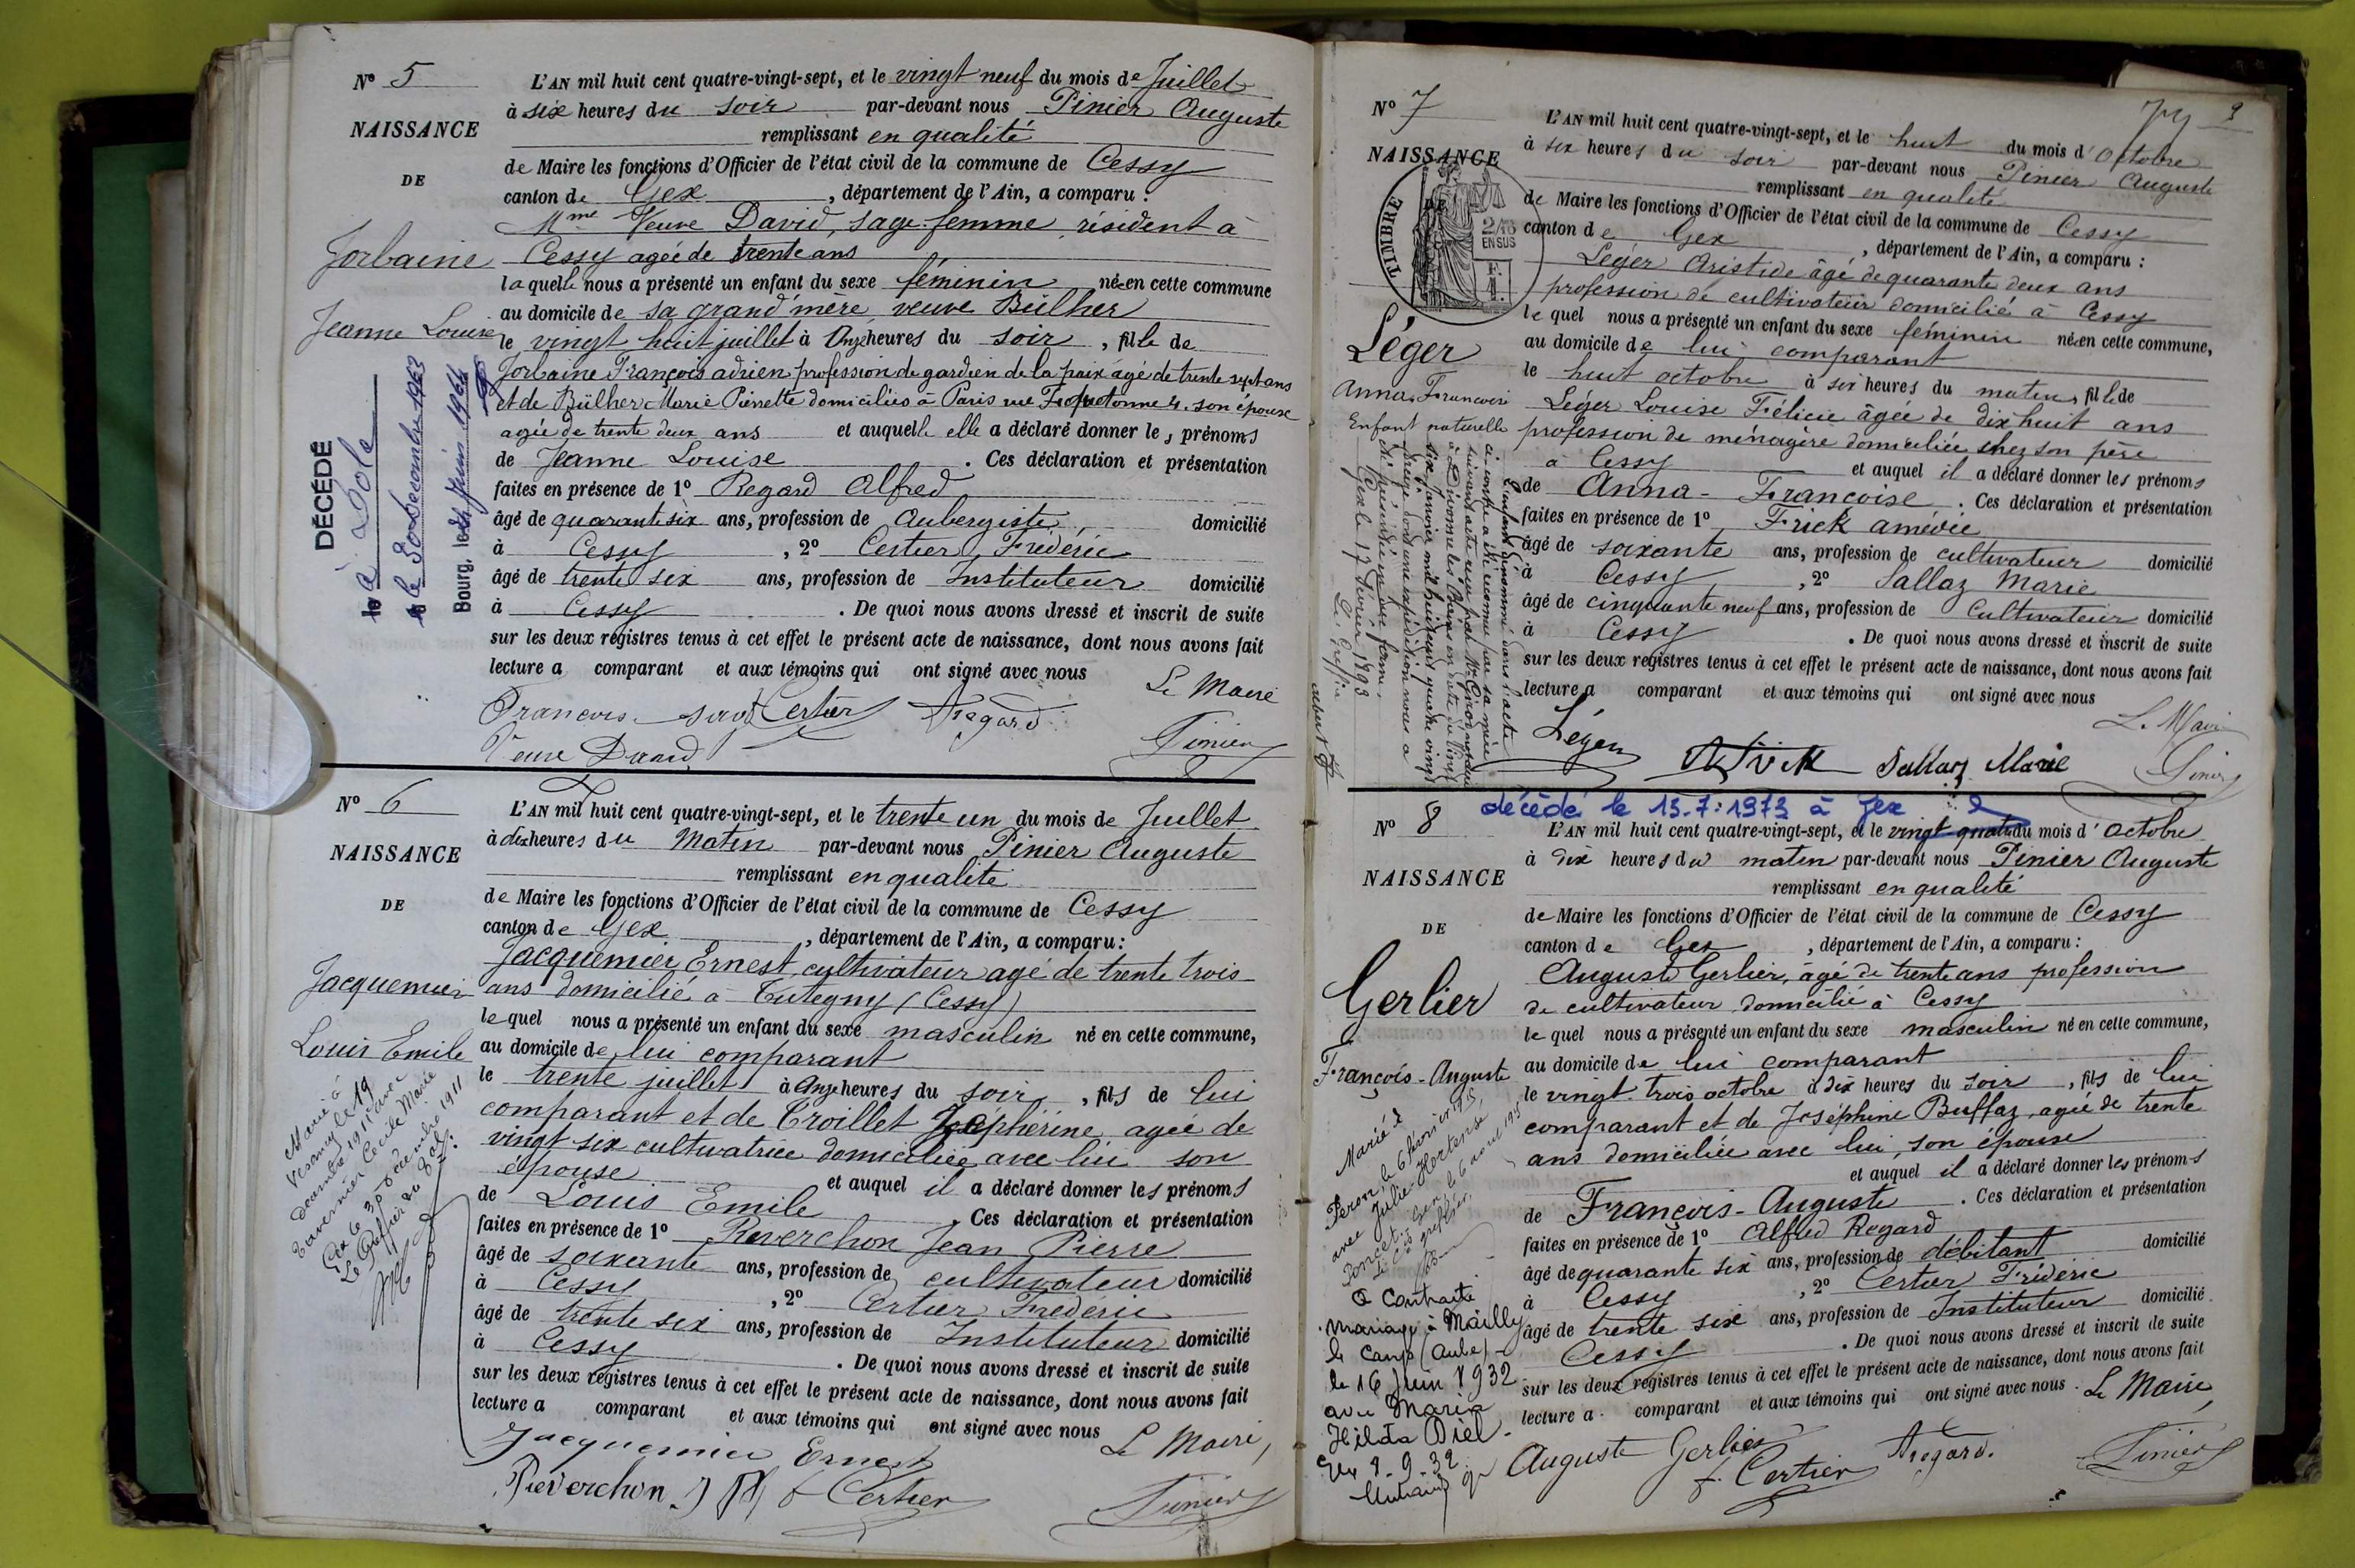 Nº 5
NAISSANCE
DE
Jorbaine
Jeanne Louise
DÉCÉDÉ
à Dole
le 30 Decembre 1963
Bourg, le Juin 1964
L'AN mil huit cent quatre-vingt-sept, et le vingt neuf du mois de Juillet
à six heures du soir par-devant nous Pinier Auguste
remplissant en qualité
de Maire les fonctions d'Officier de l'état civil de la commune de Cessy
canton de Gex, département de l'Ain, a comparu :
Mme Veuve David, sage-femme, résident à
Cessy agée de trente ans
laquelle nous a présenté un enfant du sexe féminin né en cette commune
au domicile de sa grand'mère, veuve Bülher
le vingt huit juillet à onze heures du soir, fille de
Jorbaine François adrien profession de gardien de la paix agé de trente sept ans
et de Bülher Marie Pierrette domiciliés à Paris rue 4. son épouse
agée de trente deux ans et auquelle elle a déclaré donner les prénoms
de Jeanne Louise. Ces déclaration et présentation
faites en présence de 1º Regard Alfred
âgé de quarante six ans, profession de Aubergiste, domicilié
à Cessy, 2º Certier Fréderic
âgé de trente six ans, profession de Instituteur domicilié
à Cessy. De quoi nous avons dressé et inscrit de suite
sur les deux registres tenus à cet effet le présent acte de naissance, dont nous avons fait
lecture a comparant et aux témoins qui ont signé avec nous
Le Maire
Certier Aregard
Veuve David Pinier
Nº 6
NAISSANCE
DE
Jacquemier
Louis Emile
Marié à
Vesancy le 19
décembre 1911 avec
Tavernier Cécile Marie
Gex le 30 décembre 1911
Le Greffier
L'AN mil huit cent quatre-vingt-sept, et le trente un du mois de Juillet
à dix heures du Matin par-devant nous Pinier Auguste
remplissant en qualité
de Maire les fonctions d'Officier de l'état civil de la commune de Cessy
canton de Gex, département de l'Ain, a comparu :
Jacquemier Ernest, cultivateur agé de trente trois
ans domicilié à Tutegny (Cessy)
lequel nous a présenté un enfant du sexe masculin né en cette commune,
au domicile de lui comparant
le trente juillet à onze heures du soir, fils de lui
comparant et de Croillet Joséphérine agée de
vingt six cultivatrice domiciliée avec lui son
épouse et auquel il a déclaré donner les prénoms
de Louis Emile. Ces déclaration et présentation
faites en présence de 1º Reverchon Jean Pierre
âgé de soixante ans, profession de cultivateur domicilié
à Cessy, 2º Certier Frederic
âgé de trente six ans, profession de Instituteur domicilié
à Cessy. De quoi nous avons dressé et inscrit de suite
sur les deux registres tenus à cet effet le présent acte de naissance, dont nous avons fait
lecture a comparant et aux témoins qui ont signé avec nous
Le Maire,
Jacquemier Ernest
Reverchon J P F Certier Pinier
Nº 7
NAISSANCE
DE
TIMBRE
2/10
EN SUS
Léger
Anna Francoise
Enfant naturelle
L'enfant dénommé dans l'acte
ci-contre a été reconnu par sa mère
suivant acte reçu par Me notaire
à Divonne les Bains en date du vingt
six Janvier mil huit cent quatre vingt
treize dont une expédition nous a
été présentée en due forme.
Gex le 17 Février 1893
Le Greffier
9
L'AN mil huit cent quatre-vingt-sept, et le huit du mois d'Octobre
à six heures du soir par-devant nous Pinier Auguste
remplissant en qualité
de Maire les fonctions d'Officier de l'état civil de la commune de Cessy
canton de Gex, département de l'Ain, a comparu :
Léger Aristide âgé de quarante deux ans
profession de cultivateur domicilié à Cessy
lequel nous a présenté un enfant du sexe féminin né en cette commune,
au domicile de lui comparant
le huit octobre à six heures du matin, fille de
Léger Louise Félicie âgée de dix huit ans
profession de ménagère domiciliée chez son père
à Cessy et auquel il a déclaré donner les prénoms
de Anna-Francoise. Ces déclaration et présentation
faites en présence de 1º Frick amédée
âgé de soixante ans, profession de cultivateur domicilié
à Cessy, 2º Sallaz Marie
âgé de cinquante neuf ans, profession de Cultivateur domicilié
à Cessy. De quoi nous avons dressé et inscrit de suite
sur les deux registres tenus à cet effet le présent acte de naissance, dont nous avons fait
lecture a comparant et aux témoins qui ont signé avec nous
Le Maire
Léger Frick Sallaz Marie Pinier
Nº 8
décédé le 15.7.1973 à Gex
NAISSANCE
DE
Gerlier
François-Auguste
Marié à
Peron, le 6 1915
avec Julie-Hortense
Poncet. Gex le 6 avril 1915
Le greffier,
a contracté
mariage à Mailly
le Camp (Aube)
le 16 Juin 1932
avec Maria
Hilda Diel.
Gex 1-9-32
L'AN mil huit cent quatre-vingt-sept, et le vingt-quatre du mois d'octobre
à dix heures du matin par-devant nous Pinier Auguste
remplissant en qualité
de Maire les fonctions d'Officier de l'état civil de la commune de Cessy
canton de Gex, département de l'Ain, a comparu :
Auguste Gerlier, âgé de trente ans profession
de cultivateur domicilié à Cessy
lequel nous a présenté un enfant du sexe masculin né en cette commune,
au domicile de lui comparant
le vingt-trois octobre à dix heures du soir, fils de lui
comparant et de Joséphine Buffaz, agée de trente
ans domiciliée avec lui, son épouse
et auquel il a déclaré donner les prénoms
de François-Auguste. Ces déclaration et présentation
faites en présence de 1º Alfred Regard
âgé de quarante six ans, profession de débitant domicilié
à Cessy, 2º Certier Fréderic
âgé de trente six ans, profession de Instituteur domicilié
Cessy. De quoi nous avons dressé et inscrit de suite
sur les deux registres tenus à cet effet le présent acte de naissance, dont nous avons fait
lecture a comparant et aux témoins qui ont signé avec nous. Le Maire,
Auguste Gerlier F. Certier Aregard. Pinier